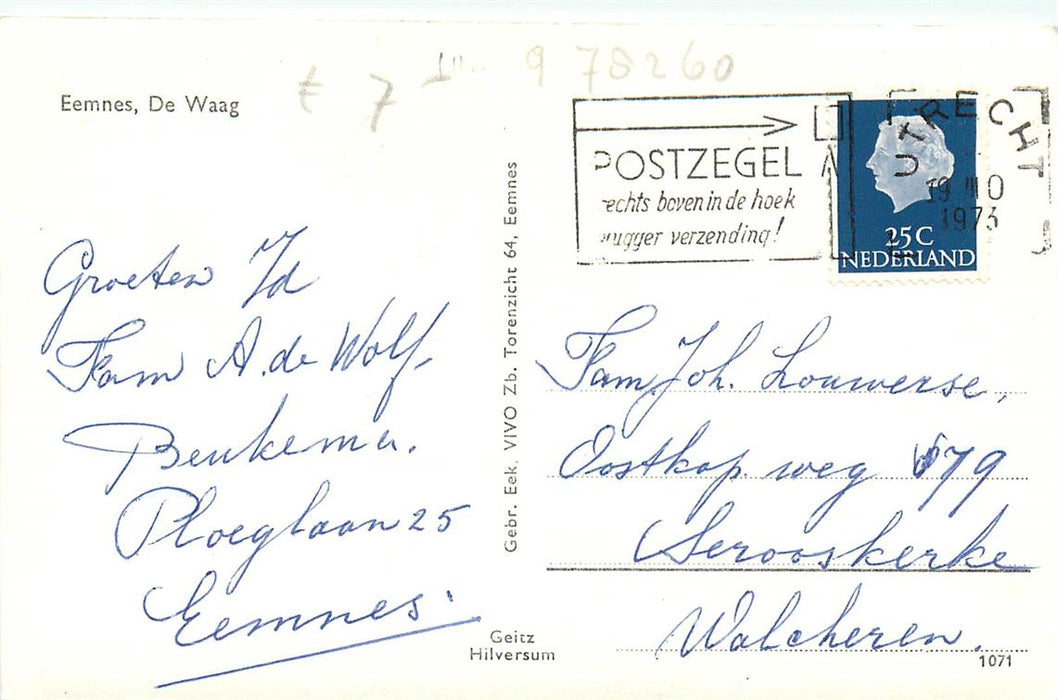 Eemnes, De Waag
€ 7
978260
POSTZEGEL
echts boven in de hoek
ugger verzending!
UTRECHT
1973
25C
NEDERLAND
Groeten
Fam A. de Wolf,
Beukema.
Ploeglaan 25
Eemnes.
Gebr. Eek. VIVO Zb. Torenzicht 64, Eemnes
Fam Joh. Louwerse,
Oostkap. weg 79
Serooskerke
Walcheren.
Geitz
Hilversum
1071